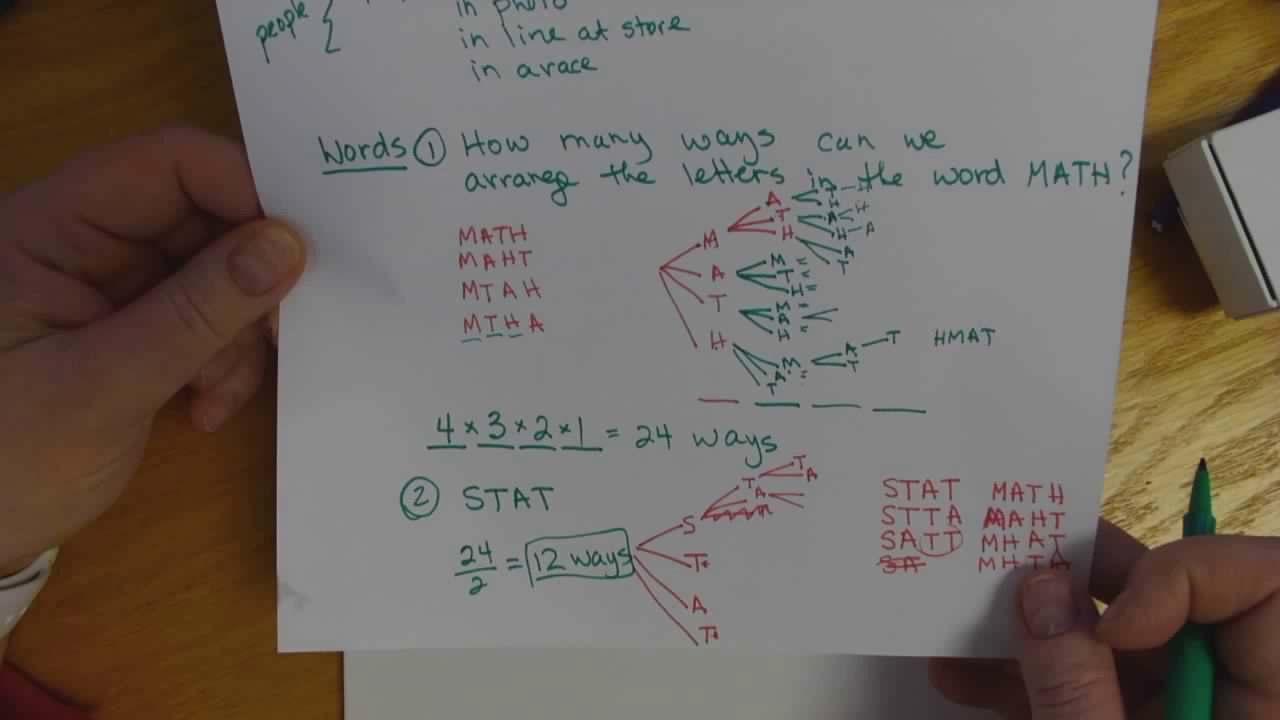 people { in photo
in line at store
in a race
Words ① How many ways can we
arraneg the letters in the word MATH?
MATH
MAHT
MTAH
MTHA
M A T H
A T H
M T H
M A H
M A T
A T
T
HMAT
4 × 3 × 2 × 1 = 24 ways
② STAT
24/2 = 12 ways
S T A T
T A
T A
STAT MATH
STTA MAHT
SATT MHAT
SA MHTA